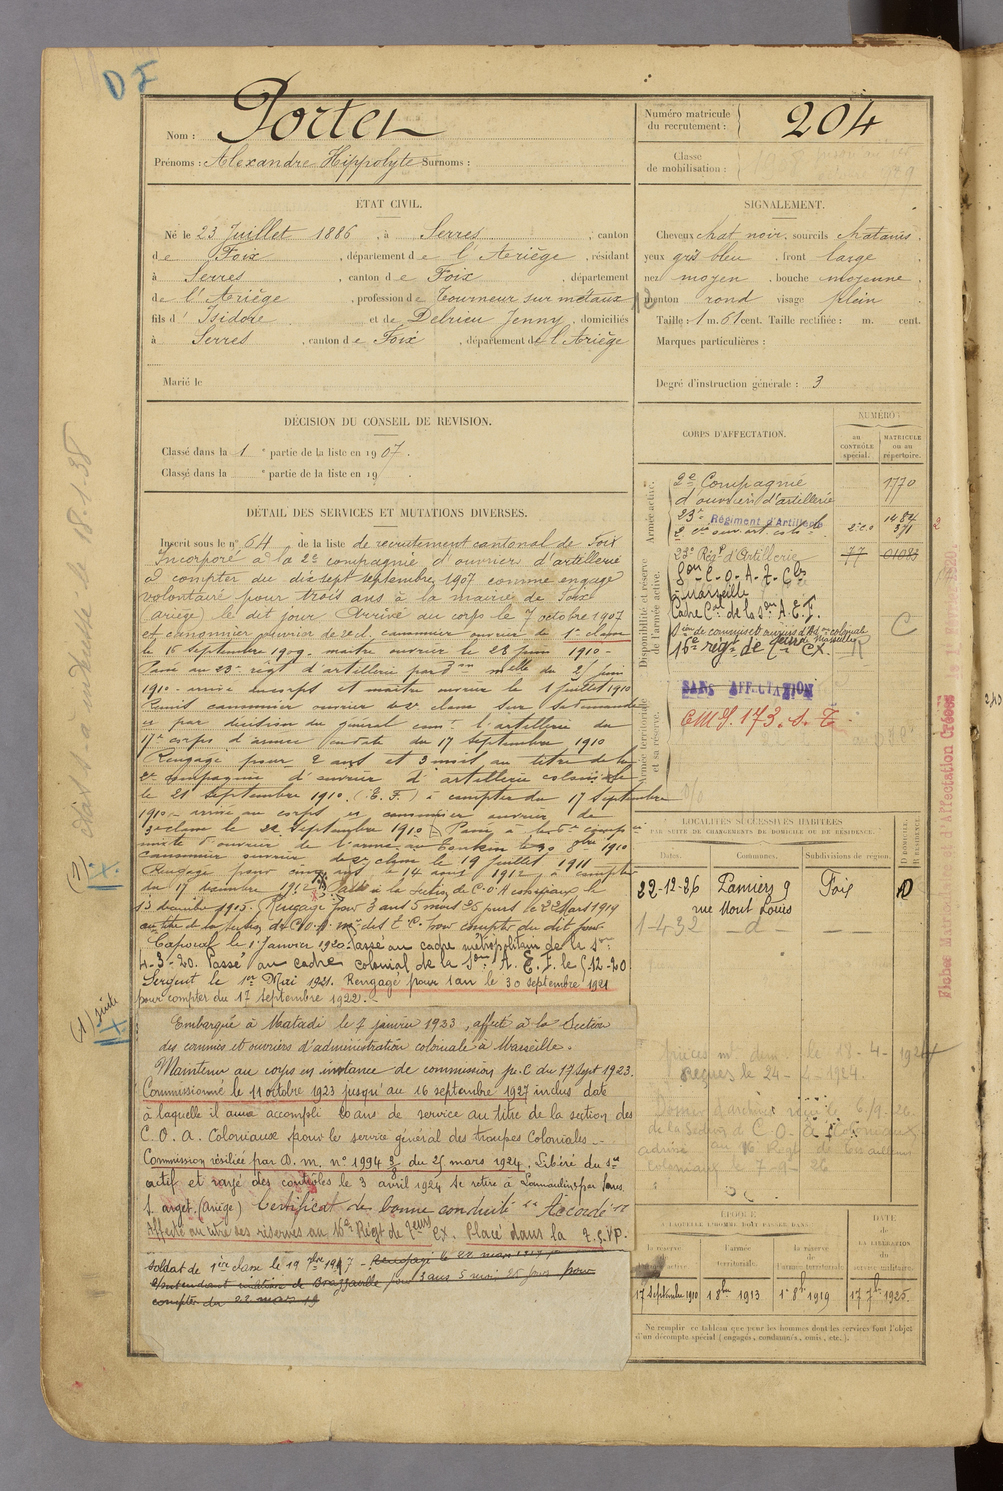 DI
Nom : Portet
Prénoms : Alexandre Hippolyte Surnoms :
Numéro matricule du recrutement : 204
Classe de mobilisation :
ÉTAT CIVIL.
Né le 23 Juillet 1886, à Serres, canton
de Foix, département de l'Ariège, résidant
à Serres, canton de Foix, département
de l'Ariège, profession de Tourneur sur métaux
fils d' Isidore et de Delrieu Jenny, domiciliés
à Serres, canton de Foix, département de l'Ariège
Marié le
SIGNALEMENT.
Cheveux chat noir, sourcils chatains,
yeux gris bleu, front large,
nez moyen, bouche moyenne,
menton rond visage plein
Taille : 1 m. 61 cent. Taille rectifiée : m. cent.
Marques particulières :
Degré d'instruction générale : 3
DÉCISION DU CONSEIL DE REVISION.
Classé dans la 1e partie de la liste en 1907.
Classé dans la e partie de la liste en 19 .
DÉTAIL DES SERVICES ET MUTATIONS DIVERSES.
Inscrit sous le n° 64 de la liste de recrutement cantonal de Foix
Incorporé à la 2e compagnie d'ouvriers d'artillerie
à compter du dix sept septembre 1907 comme engagé
volontaire pour trois ans à la mairie de Foix
(Ariège) le dit jour. Arrivé au corps le 7 octobre 1907
et canonnier ouvrier de 2e cl, canonnier ouvrier de 1e classe
le 16 septembre 1909. maitre ouvrier le 28 juin 1910 -
Passé au 23e régt d'artillerie par du 25 juin
1910 - arrivé au corps et maitre ouvrier le 1 juillet 1910
Remis canonnier ouvrier de 2e classe sur sa demande
et par décision du général comt l'artillerie du
17e corps d'armée en date du 17 septembre 1910
Rengagé pour 2 ans et 3 mois au titre de la
2e compagnie d'ouvriers d'artillerie coloniale
le 21 septembre 1910. (E. F.) à compter du 17 septembre
1910 - arrivé au corps et canonnier ouvrier de
3e classe le 22 septembre 1910 Passé à la 6e compie
mixte d'ouvriers de l'arme au Tonkin le 30 8bre 1910
canonnier ouvrier de 2e classe le 19 juillet 1911
Rengagé pour cinq ans le 14 août 1912, à compter
du 17 décembre 1912 Passé à la section de C.O.A coloniaux le
13 décembre 1915. Rengagé pour 3 ans 5 mois 25 jours le 22 Mars 1919
au titre de la Section de C.O.A. pour compter du dit jour
Caporal le 1 Janvier 1920. Passé au cadre métropolitain de la son
4-3-20. Passé au cadre colonial de la Son A. E. F. le 5-12-20
Sergent le 1er Mai 1921. Rengagé pour 1 an le 30 septembre 1921
pour compter du 17 septembre 1922.
Embarqué à Matadi le 7 janvier 1923, affecté à la Section
des commis et ouvriers d'administration coloniale à Marseille.
Maintenu au corps en instance de commission p.c du 17 Sept 1923.
Commissionné le 11 octobre 1923 jusqu'au 16 septembre 1927 inclus date
à laquelle il aura accompli 20 ans de service au titre de la section des
C. O. A. Coloniaux pour le service général des troupes Coloniales -
Commission résiliée par D. M. n° 1994 3/8 du 25 mars 1924. Libéré du sce
actif et rayé des contrôles le 3 avril 1924 Se retire à
(Ariège) Certificat de bonne conduite "Accordé"
Affecté au titre des réserves au 16e Régt de Teurs Ex. Placé dans la
Soldat de 1ère classe le 19 1917 - Rengagé le 22 mars 1919
pour 3 ans 5 mois 25 jours pour
compter du 22 mars 19
CORPS D'AFFECTATION.
NUMÉRO
au CONTRÔLE spécial.
MATRICULE ou au répertoire.
Armée active.
2e Compagnie d'ouvriers d'artillerie 1770
23e Régiment d'Artillerie 1482
371
Disponibilité et réserve de l'armée active.
23e Régt d'Artillerie 77 01083
Son C. O. A. T. Cles
Marseille
Cadre Cal de la Son A. E. F.
Son de commis et ouvriers d'Adon coloniale
Marseille
16e régt de Teurs Cx. R
C
Armée territoriale et sa réserve.
SANS AFFECTATION
CMI. 173. S. T.
LOCALITÉS SUCCESSIVES HABITÉES
PAR SUITE DE CHANGEMENTS DE DOMICILE OU DE RÉSIDENCE.
Dates. Communes. Subdivisions de région. D DOMICILE. R RÉSIDENCE.
22-12-26 Pamiers 9 Foix D
rue Mont Louis
1-4-32 -d- -
ÉPOQUE
À LAQUELLE L'HOMME DOIT PASSER DANS
la réserve active.
l'armée territoriale.
la réserve de l'armée territoriale.
DATE de LA LIBÉRATION du service militaire.
17 Septembre 1910
1 8bre 1913
1 8bre 1919
17 7bre 1925.
Ne remplir ce tableau que pour les hommes dont les services font l'objet
d'un décompte spécial (engagés, condamnés, omis, etc.).